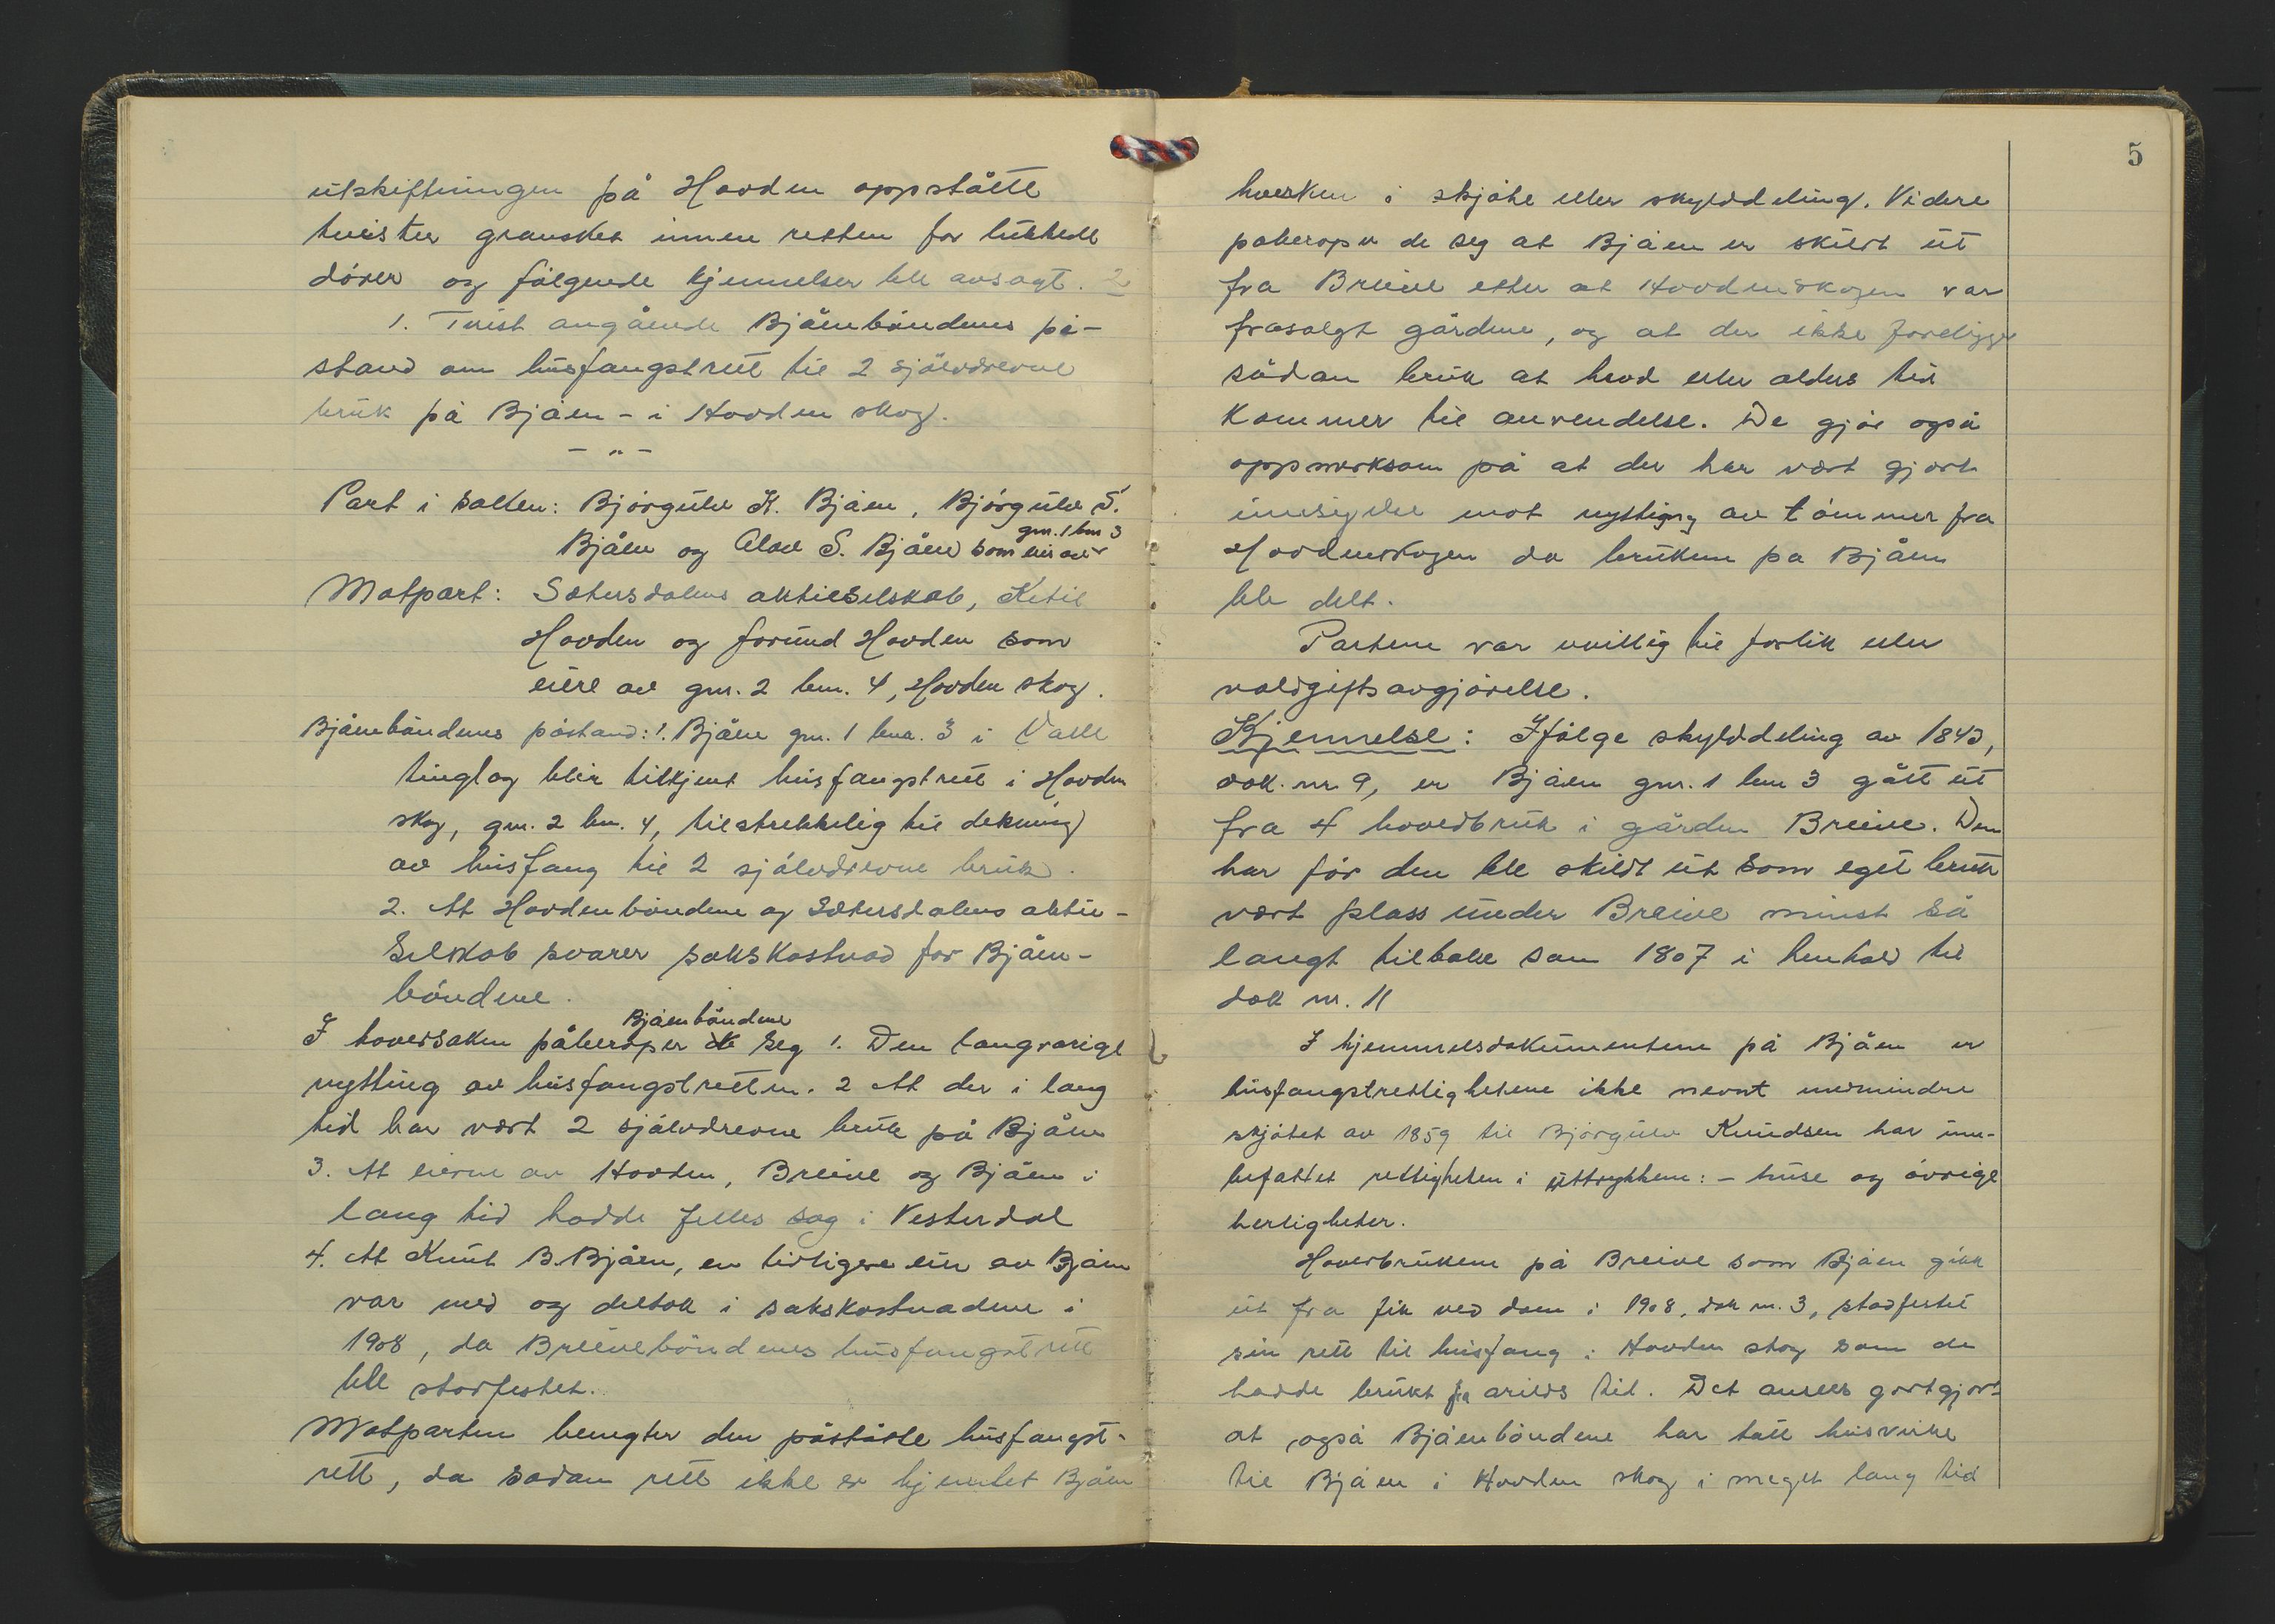 utskiftningen på Hovden oppståtte
tvister gransket innen retten for lukkede
dører og følgende kjennelser ble avsagt. 2
1. Tvist angående Bjåenbøndenes på-
stand om husfangstrett til 2 sjølvdrevne
bruk på Bjåen - i Hovden skog.
- " -
Part i saken: Bjørgulv K. Bjåen, Bjørgulv S.
gnr. 1 bnr 3
Bjåen og Alav S. Bjåen som eier av
Motpart: Setersdalens aktieselskab, Ketil
Hovden og Jorund Hovden som
eiere av gnr. 2 bnr. 4, Hovden skog.
Bjåenbøndenes påstand: 1. Bjåen gnr. 1 bnr. 3 i Valle
tinglag blir tilkjent husfangstrett i Hovden
skog, gnr. 2 bnr. 4, tilstrekkelig til dekning
av husfang til 2 sjølvdrevne bruk.
2. At Hovdenbøndene og Setersdalens aktie-
selskab svarer sakskostnad for Bjåen-
bøndene.
Bjåenbøndene
I hovedsaken påberoper de seg 1. Den langvarige
nytting av husfangstretten. 2 At der i lang
tid har vært 2 sjølvdrevne bruk på Bjåen
3. At eierne av Hovden, Breive og Bjåen i
lang tid hadde felles sag i Vesterdal
4. At Knut B. Bjåen, en tidligere eier av Bjåen
var med og deltok i sakskostnadene i
1908, da Breivebøndenes husfangstrett
ble stadfestet.
Motparten benegter den påståtte husfangst-
rett, da sådan rett ikke er hjemlet Bjåen
5
hverken i skjøte eller skylddeling. Videre
påberoper de seg at Bjåen er skilt ut
fra Breive etter at Hovdenskogen var
frasolgt gårdene, og at der ikke foreligger
sådan bruk at hevd eller alders tid
kommer til anvendelse. De gjør også
oppmerksom på at der har vært gjort
innsigelse mot nytting av tømmer fra
Hovdenskogen da brukene på Bjåen
ble delt.
Partene var uvillig til forlik eller
voldgiftsavgjørelse.
Kjennelse: Ifølge skylddeling av 1843,
dok. nr. 9, er Bjåen gnr. 1 bnr 3 gått ut
fra 4 hovedbruk i gården Breive. Den
har før den ble skildt ut som eget bruk
vært plass under Breive minst så
langt tilbake som 1807 i henhold til
dok nr. 11
I hjemmelsdokumentene på Bjåen er
husfangstrettighetene ikke nevnt medmindre
skjøtet av 1859 til Bjørgulv Knudsen har inn-
befattet rettigheten i uttrykkene: - huse og øvrige
herligheter.
Hovedbrukene på Breive som Bjåen gikk
ut fra fik ved dom i 1908, dok nr. 3, stadfestet
sin rett til husfang i Hovden skog som de
hadde brukt fra arilds tid. Det ansees godtgjort
at også Bjåenbøndene har tatt husvirke
til Bjåen i Hovden skog i meget lang tid